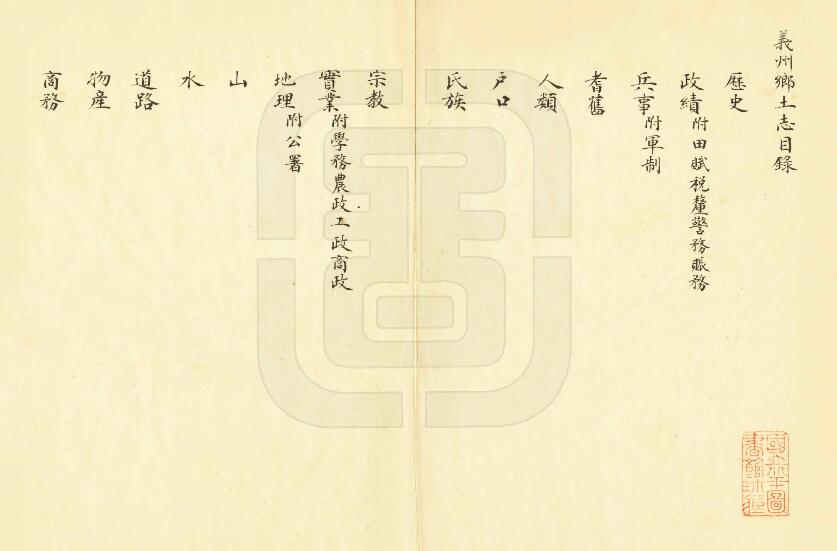 義州鄉土志目錄
歷史
政績附田賦稅釐警務賑務
兵事附軍制
耆舊
人類
戶口
氏族
宗教
實業附學務農政工政商政
地理附公署
山
水
道路
物產
商務